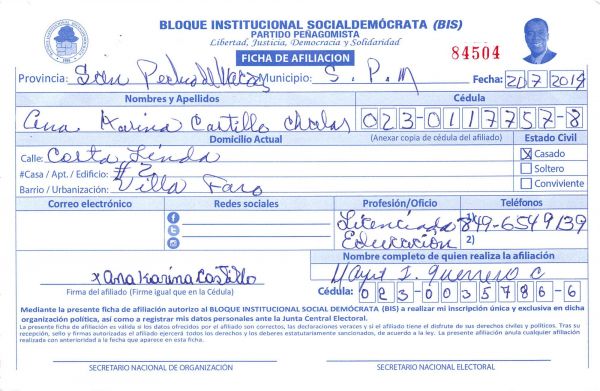 BLOQUE INSTITUCIONAL SOCIALDEMÓCRATA (BIS)
PARTIDO PEÑAGOMISTA
Libertad, Justicia, Democracia y Solidaridad
84504
FICHA DE AFILIACION
Provincia: San Pedro de Macoris Municipio: S. P. M Fecha: 20 7 2019
Nombres y Apellidos Cédula
Ana Karina Castillo Chalas 023-0117757-8
Domicilio Actual (Anexar copia de cédula del afiliado) Estado Civil
Calle: Costa Linda X Casado
#Casa / Apt. / Edificio: #2 Soltero
Barrio / Urbanización: Villa Faro Conviviente
Correo electrónico Redes sociales Profesión/Oficio Teléfonos
Licenciada 1) 849-6549139
Educación 2)
Nombre completo de quien realiza la afiliación
x Ana Karina Castillo J. Guerrero C
Firma del afiliado (Firme igual que en la Cédula) Cédula: 023-0035786-6
Mediante la presente ficha de afiliación autorizo al BLOQUE INSTITUCIONAL SOCIAL DEMÓCRATA (BIS) a realizar mi inscripción única y exclusiva en dicha
organización política, así como a registrar mis datos personales ante la Junta Central Electoral.
La presente ficha de afiliación es válida si los datos ofrecidos por el afiliado son correctos, las declaraciones veraces y si el afiliado tiene el disfrute de sus derechos civiles y políticos. Tras su
recepción, sello y firmas autorizadas el afiliado ejercerá todos los derechos y los deberes estatutariamente sancionados, de acuerdo a la ley. La presente afiliación anula cualquier afiliación
realizada con anterioridad a le fecha que aparece en esta ficha.
SECRETARIO NACIONAL DE ORGANIZACIÓN SECRETARIO NACIONAL ELECTORAL